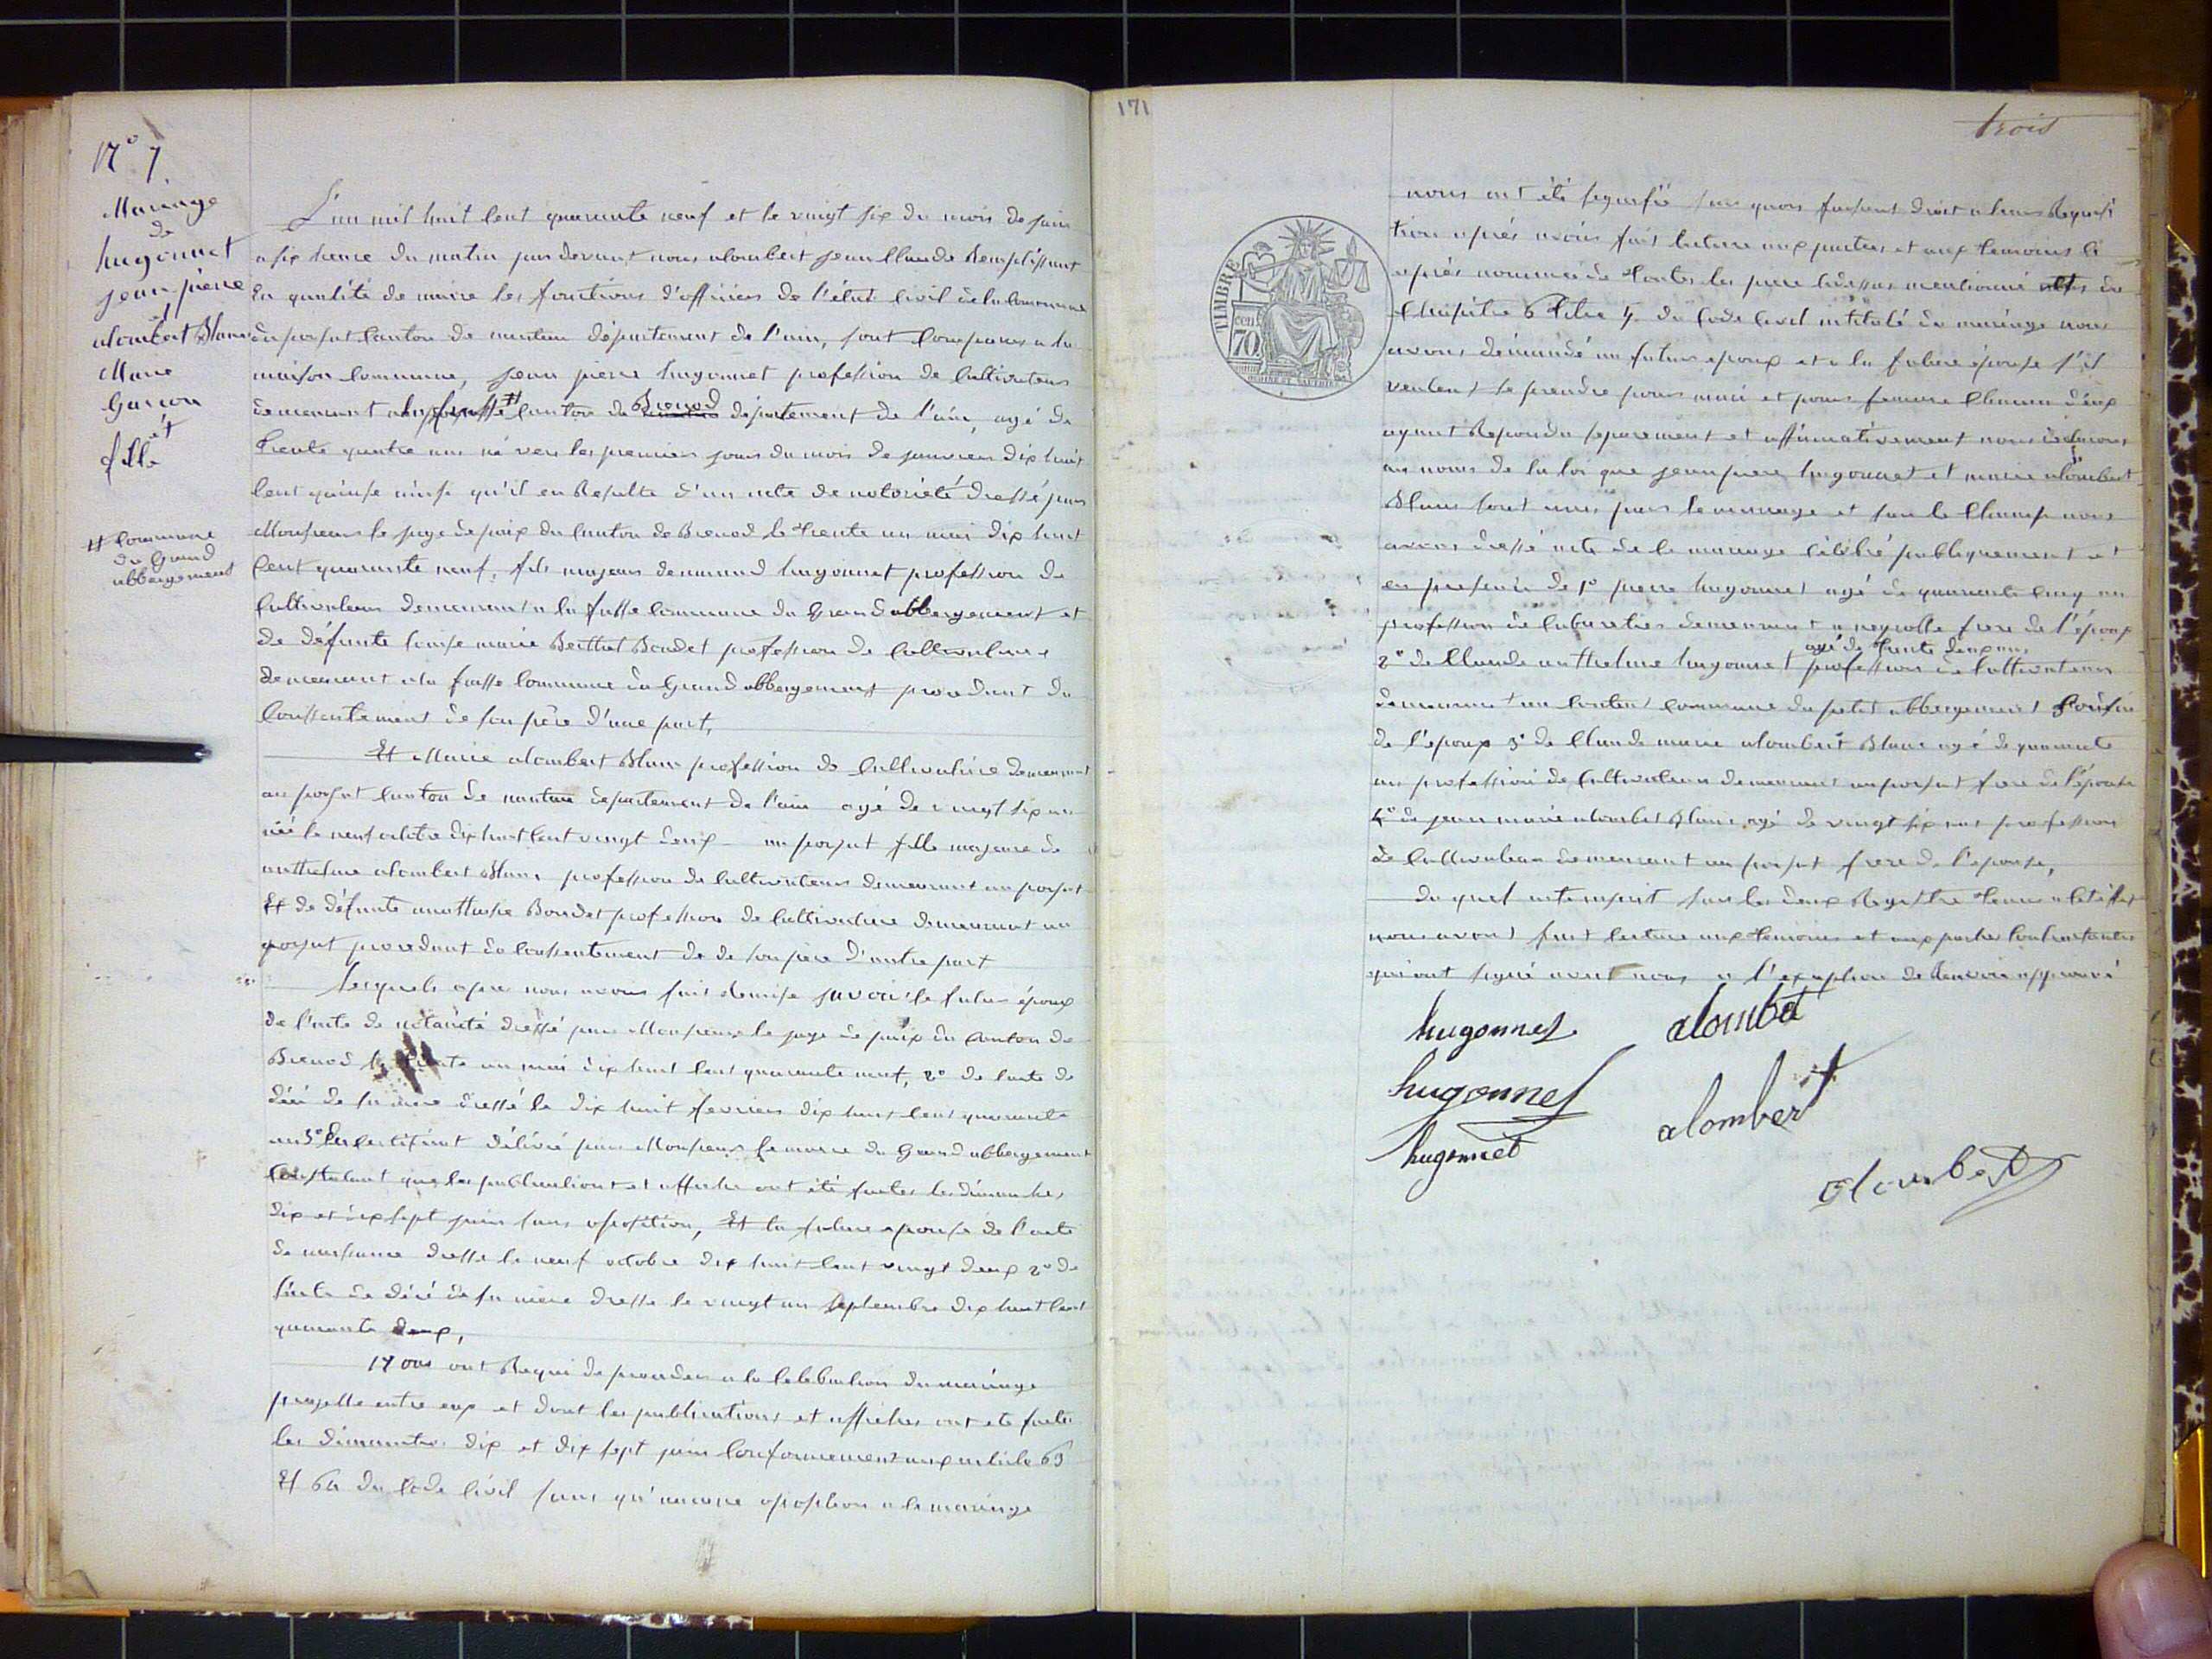 N° 7
Mariage
de
hugonnet
jean pierre
et
alombert Blanc
Marie
Garcon
et
fille
# Commune
du Grand
abbergement
L'an mil huit Cent quarante neuf et le vingt six du mois de juin
a six heure du matin par devant nous alombert jean Claude Remplissant
En qualité de maire les fonctions d'officier de l'état Civil de la Commune
du poizat Canton de nantua département de l'ain, sont Comparus a la
maison Commune, jean pierre hugonnet profession de Cultivateur
demeurant a la fusse # Canton de Brenod département de l'ain, agé de
trente quatre ans né vers les premiers jours du mois de janvier dix huit
Cent quinse ainsi qu'il en Resulte d'un acte de notoriété dressé par
Monsieur le juge de paix du Canton de Brenod le trente un mai dix huit
Cent quarante neuf, fils majeur de hugonnet profession de
Cultivateur demeurant a la fusse Commune du Grand abbergement et
de défunte louise marie Berthet Bondet profession de Cultivatrice
demeurant a la fusse Commune du Grand abbergement procedant du
Consentement de son père d'une part,
Et Marie alombert Blanc profession de Cultivatrice demeurant
au poizat Canton de nantua departement de l'ain agé de vingt six ans
née le neuf octobre dix huit Cent vingt deux au poizat fille majeure de
anthelme alombert Blanc profession de Cultivateur demeurant au poizat
Et de défunte anasthasie Bondet profession de Cultivatrice demeurant au
poizat procedant du Consentement de de son père d'autre part
lesquels apres nous avoir fait remise savoir le futur époux
de l'acte de notoriété dressé par Monsieur le juge de paix du Canton de
Brenod le trente un mai dix huit Cent quarante neuf, 2° de l'acte de
décé de sa mère dressé le dix huit fevrier dix huit Cent quarante
un 3° du Certificat délivré par Monsieur le maire du Grand abbergement
Constatant que les publications et affiche ont été faites les dimanches
dix et dix sept juin sans oposition, Et la future epouse de l'acte
de naissance dressé le neuf octobre dix huit Cent vingt deux 2° de
l'acte de décé de sa mère dresse le vingt un septembre dix huit Cent
quarante deux,
Nous ont Requi de proceder a la Celebration du mariage
projetté entre eux et dont les publications et affiches ont eté faite
les dimanches dix et dix sept juin Conformement aux article 63
Et 64 du Code Civil sans qu'aucune oposition a le mariage
171
trois
TIMBRE
cen
70
nous ait été signifié sur quoi faisant droit a leur Requisi
tion aprés avoir fait lecture aux parties et aux temoins Ci
aprés nommé de toutes les piece Cidessus mentionné et du
Chapitre 6 titre 5 du Code Civil intitulé du mariage nous
avons démandé au futur epoux et a la future épouse s'il
veulent se prendre pour mari et pour femme Chacun d'eux
ayant Repondu separement et affirmativement nous déclarons
au nom de la loi que jean pierre hugonnet et marie alombert
Blanc sont unis par le mariage et sur le Champ nous
avons dressé acte de le mariage Célébré publiquement et
en presence de 1° pierre hugonnet agé de quarante Cinq ans
profession de Cabaretier demeurant a neyrolle frere de l'époux
2° de Claude anthelme hugonnet agé de trente deux ans profession de Cultivateur
demeurant au Commune du petit abbergement Cousin
de l'epoux 3° de Claude marie alombert Blanc agé de quarante
ans profession de Cultivateur demeurant au poizat frere de l'épouse
4° de jean marie alombert Blanc agé de vingt six ans profession
de Cultivateur demeurant au poizat frere de l'epouse,
du quel acte inscrit sur les deux Registre tenu a cet effet
nous avons fait lecture aux temoins et aux partie Contractantes
qui ont signé avec nous a l'exeption de approuvé
hugonnet alombet
hugonnet alombert
hugonnet
alombert